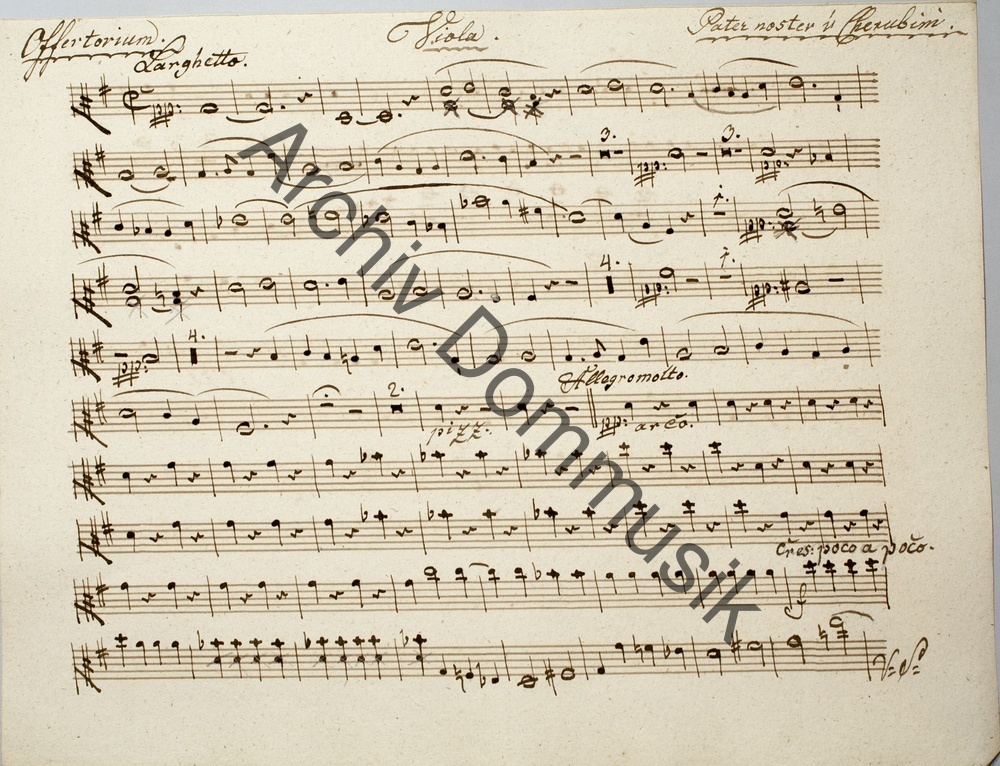 Offertorium.
Viola.
Pater noster v Cherubini.
Larghetto.
pp:
3.
3.
pp:
pp:
1.
pp:
4.
1.
pp:
pp:
pp:
4.
Allegro molto.
2.
pizz.
pp: arco.
Cres: poco a poco.
f
V: S:
Archiv Dommusik